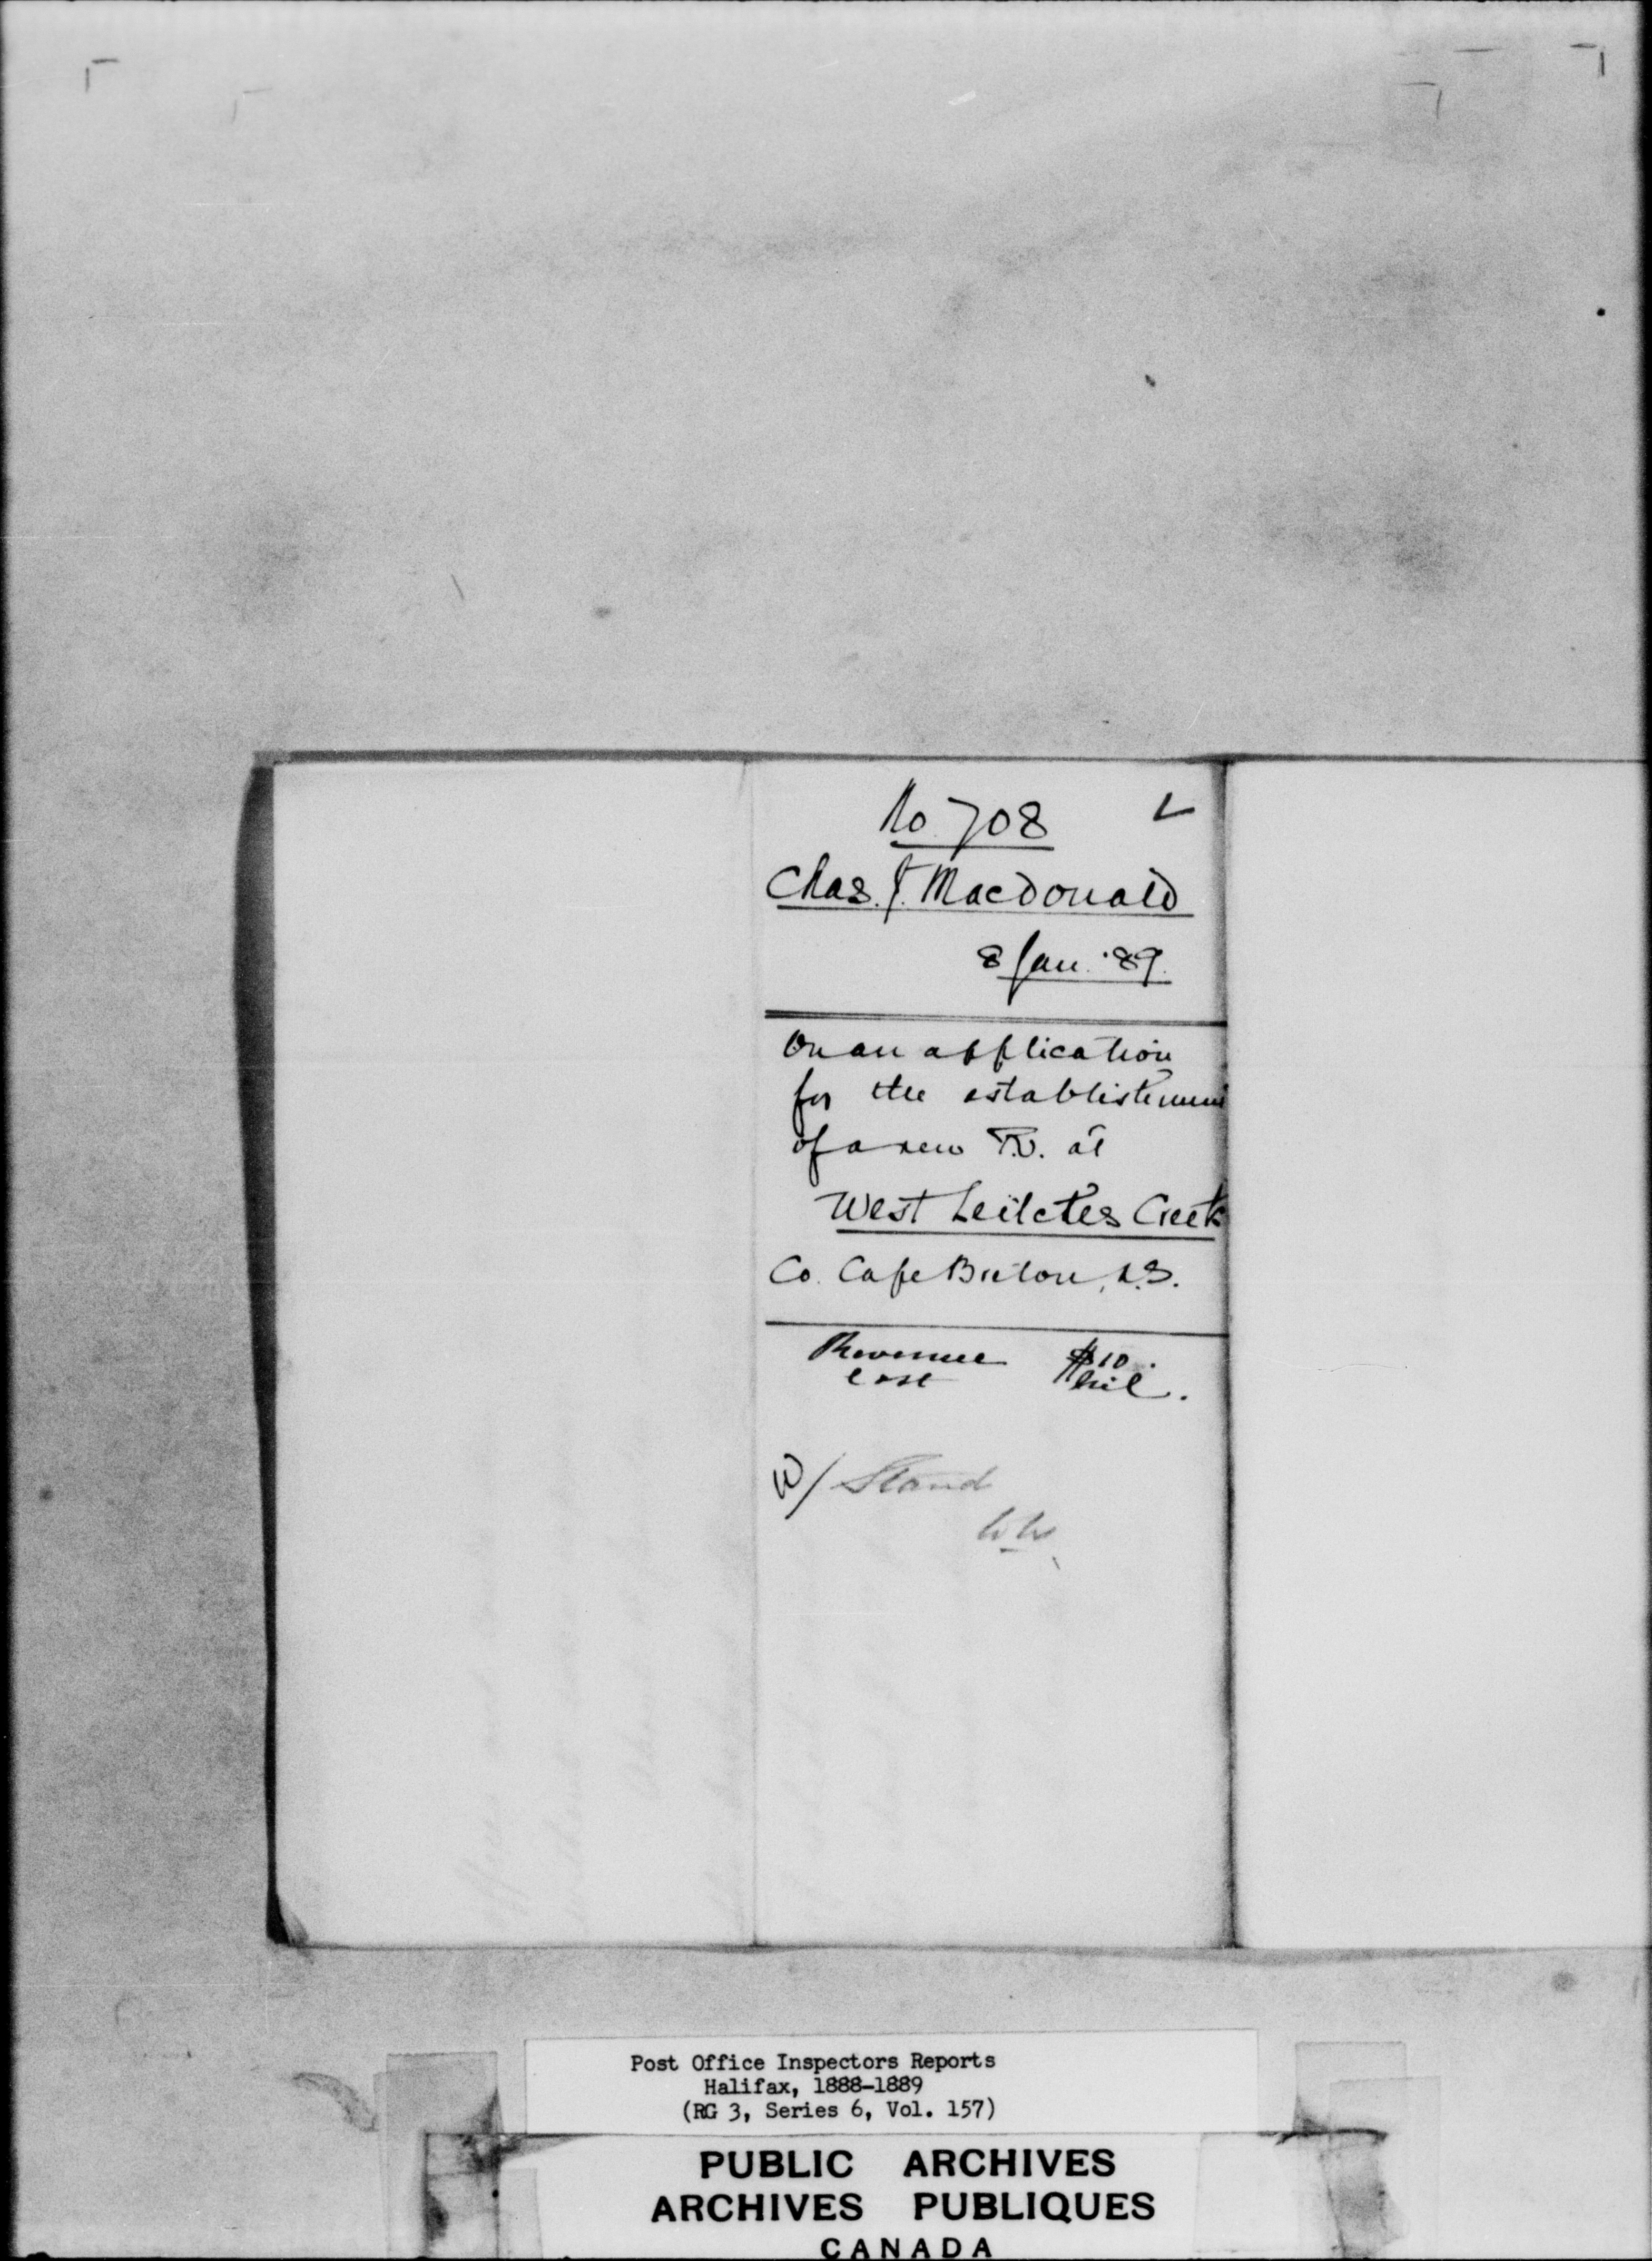 No 708
Chas. J. Macdonald
8 Jan. '89.
On an application
for the establishment
of a new P.O. at
West Leitches Creek
Co. Cape Breton, N.S.
Revenue $10.
Cost Nil.
W/ Stand
Post Office Inspectors Reports
Halifax, 1888-1889
(RG 3, Series 6, Vol. 157)
PUBLIC ARCHIVES
ARCHIVES PUBLIQUES
CANADA